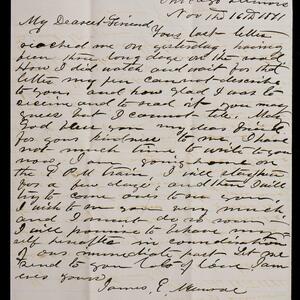 Chicago Illinois
Nov the 16th 1871
My Dearest Friend,
Your last letter
reached me on yesterday, having
been three long days on the road
how I did watch and wait for that
letter my pen cannot describe
to you, and how glad I was to
receive and to read it you may
guess but I cannot tell. May
God bless you my dear friend
for your kindness to me I have
not much time to write to you
now, I am going home on
the P.M train, I will stay there
for a few days, and then I will
try to come out to see you,
I wish to see you very much,
and I must do so soon
I will promise to behave my-
self hereafter in consideration
of our immediate past Let me
send to you lots of love I am
ever yours
James, E. Munroe